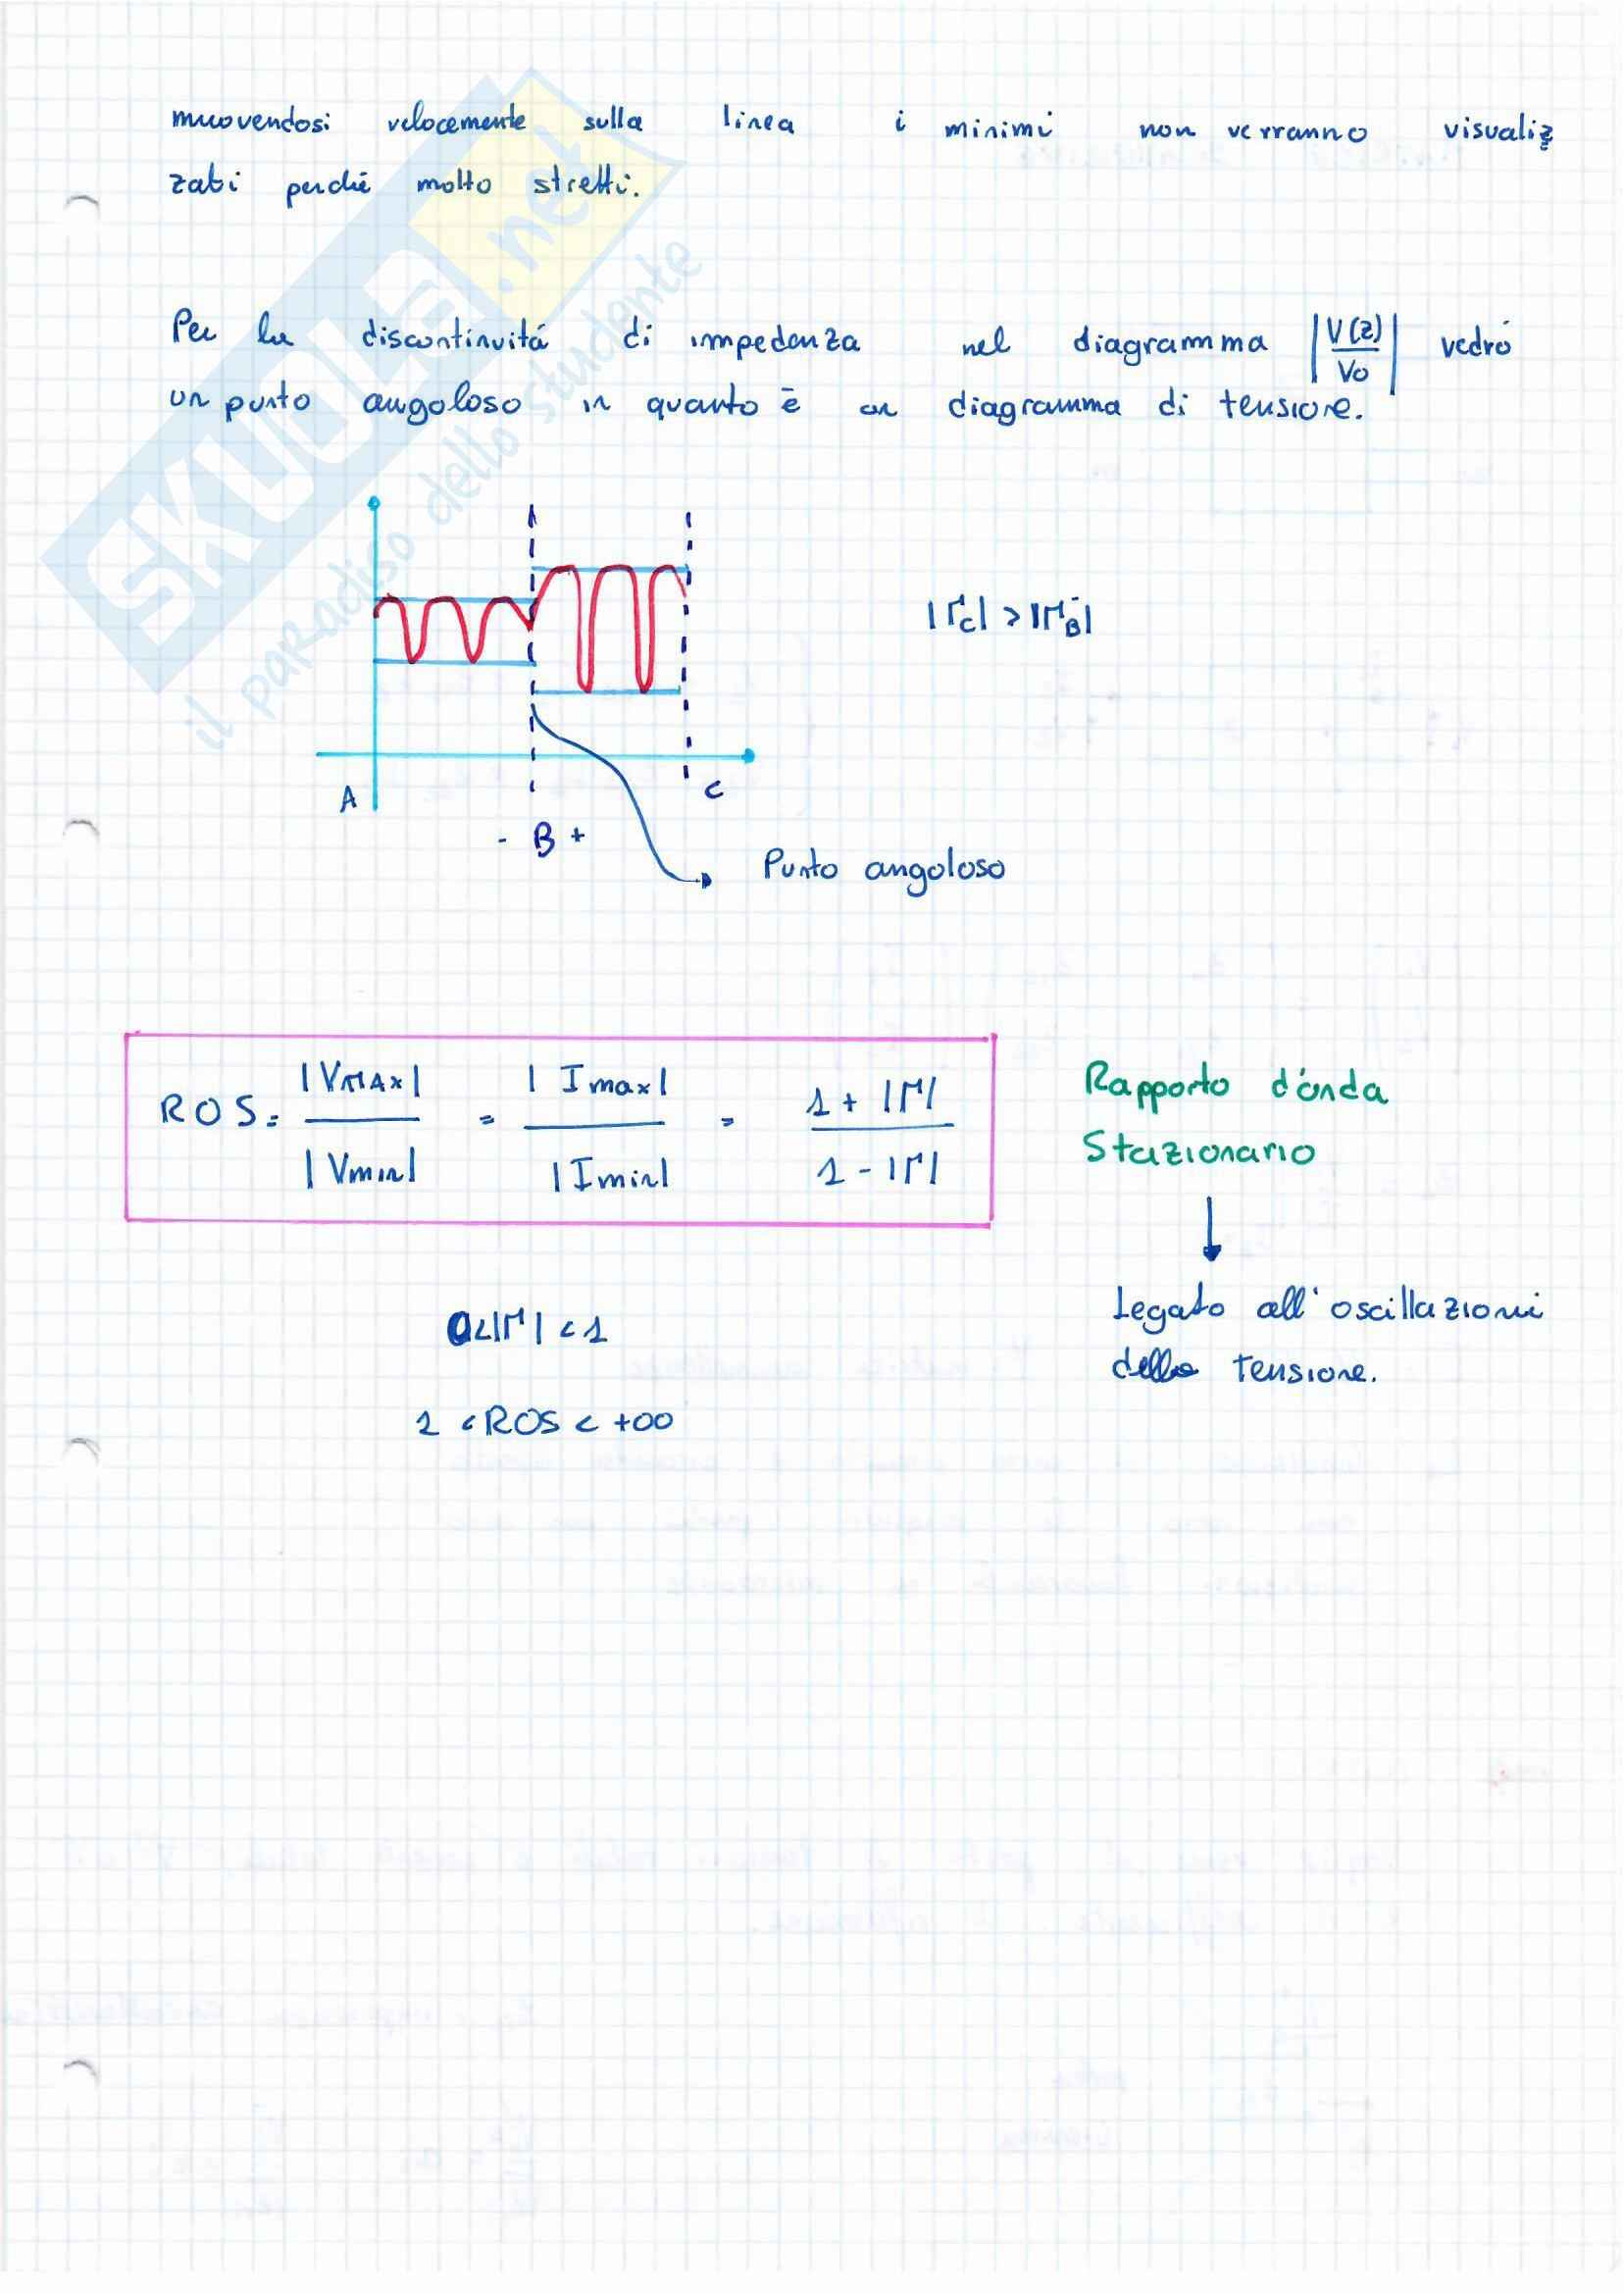 muovendosi velocemente sulla linea i minimi non verranno visualiz
zati perché molto stretti.
Per la discontinuitá di impedenza nel diagramma |V(z)/Vo| vedró
un punto angoloso in quanto è un diagramma di tensione.
|Γc| > |ΓB⁻|
A
- B +
C
Punto angoloso
ROS = |VMAX| / |Vmin| = |Imax| / |Imin| = 1 + |Γ| / 1 - |Γ|
Rapporto d'onda
Stazionario
Legato all'oscillazioni
della tensione.
0<|Γ|<1
1 < ROS < +∞
SKUOLA.net
il paradiso dello studente